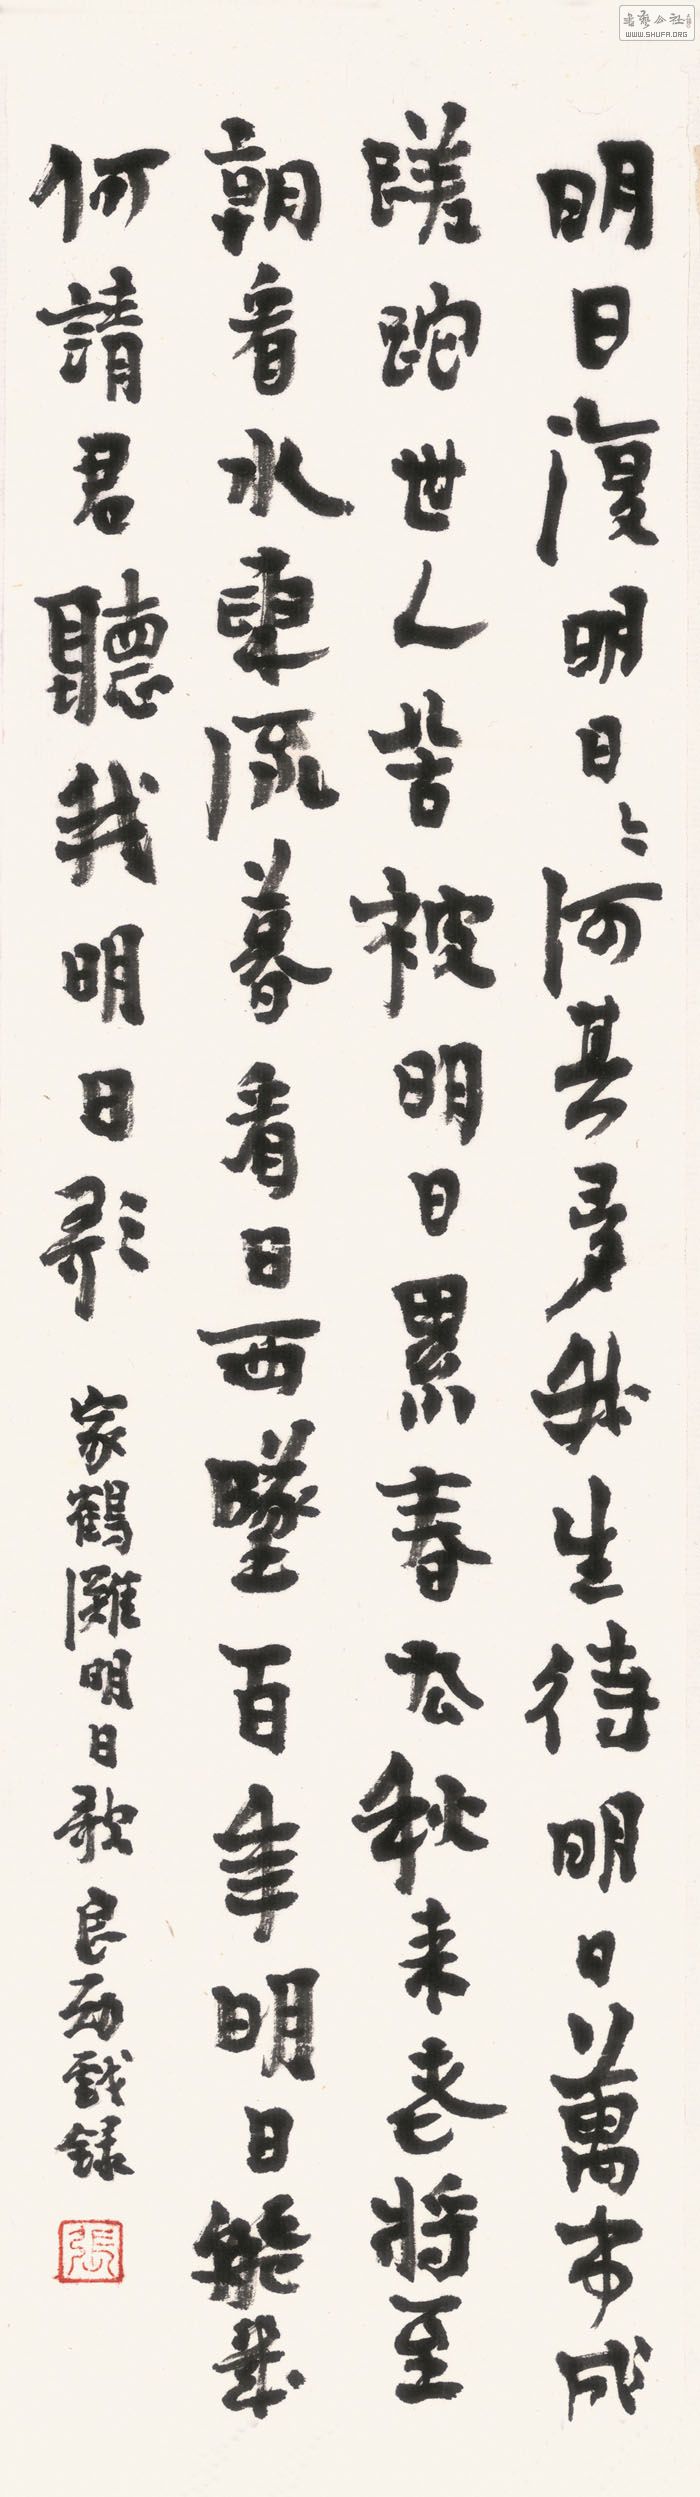 明日復明日〻何其多我生待明日萬事成
蹉跎世人苦被明日累春去秋来老將至
朝看水東流暮看日西墜百年明日能幾
何請君聽我明日歌
家鶴灘明日歌良勛戲録
張
書藝公社
WWW.SHUFA.ORG